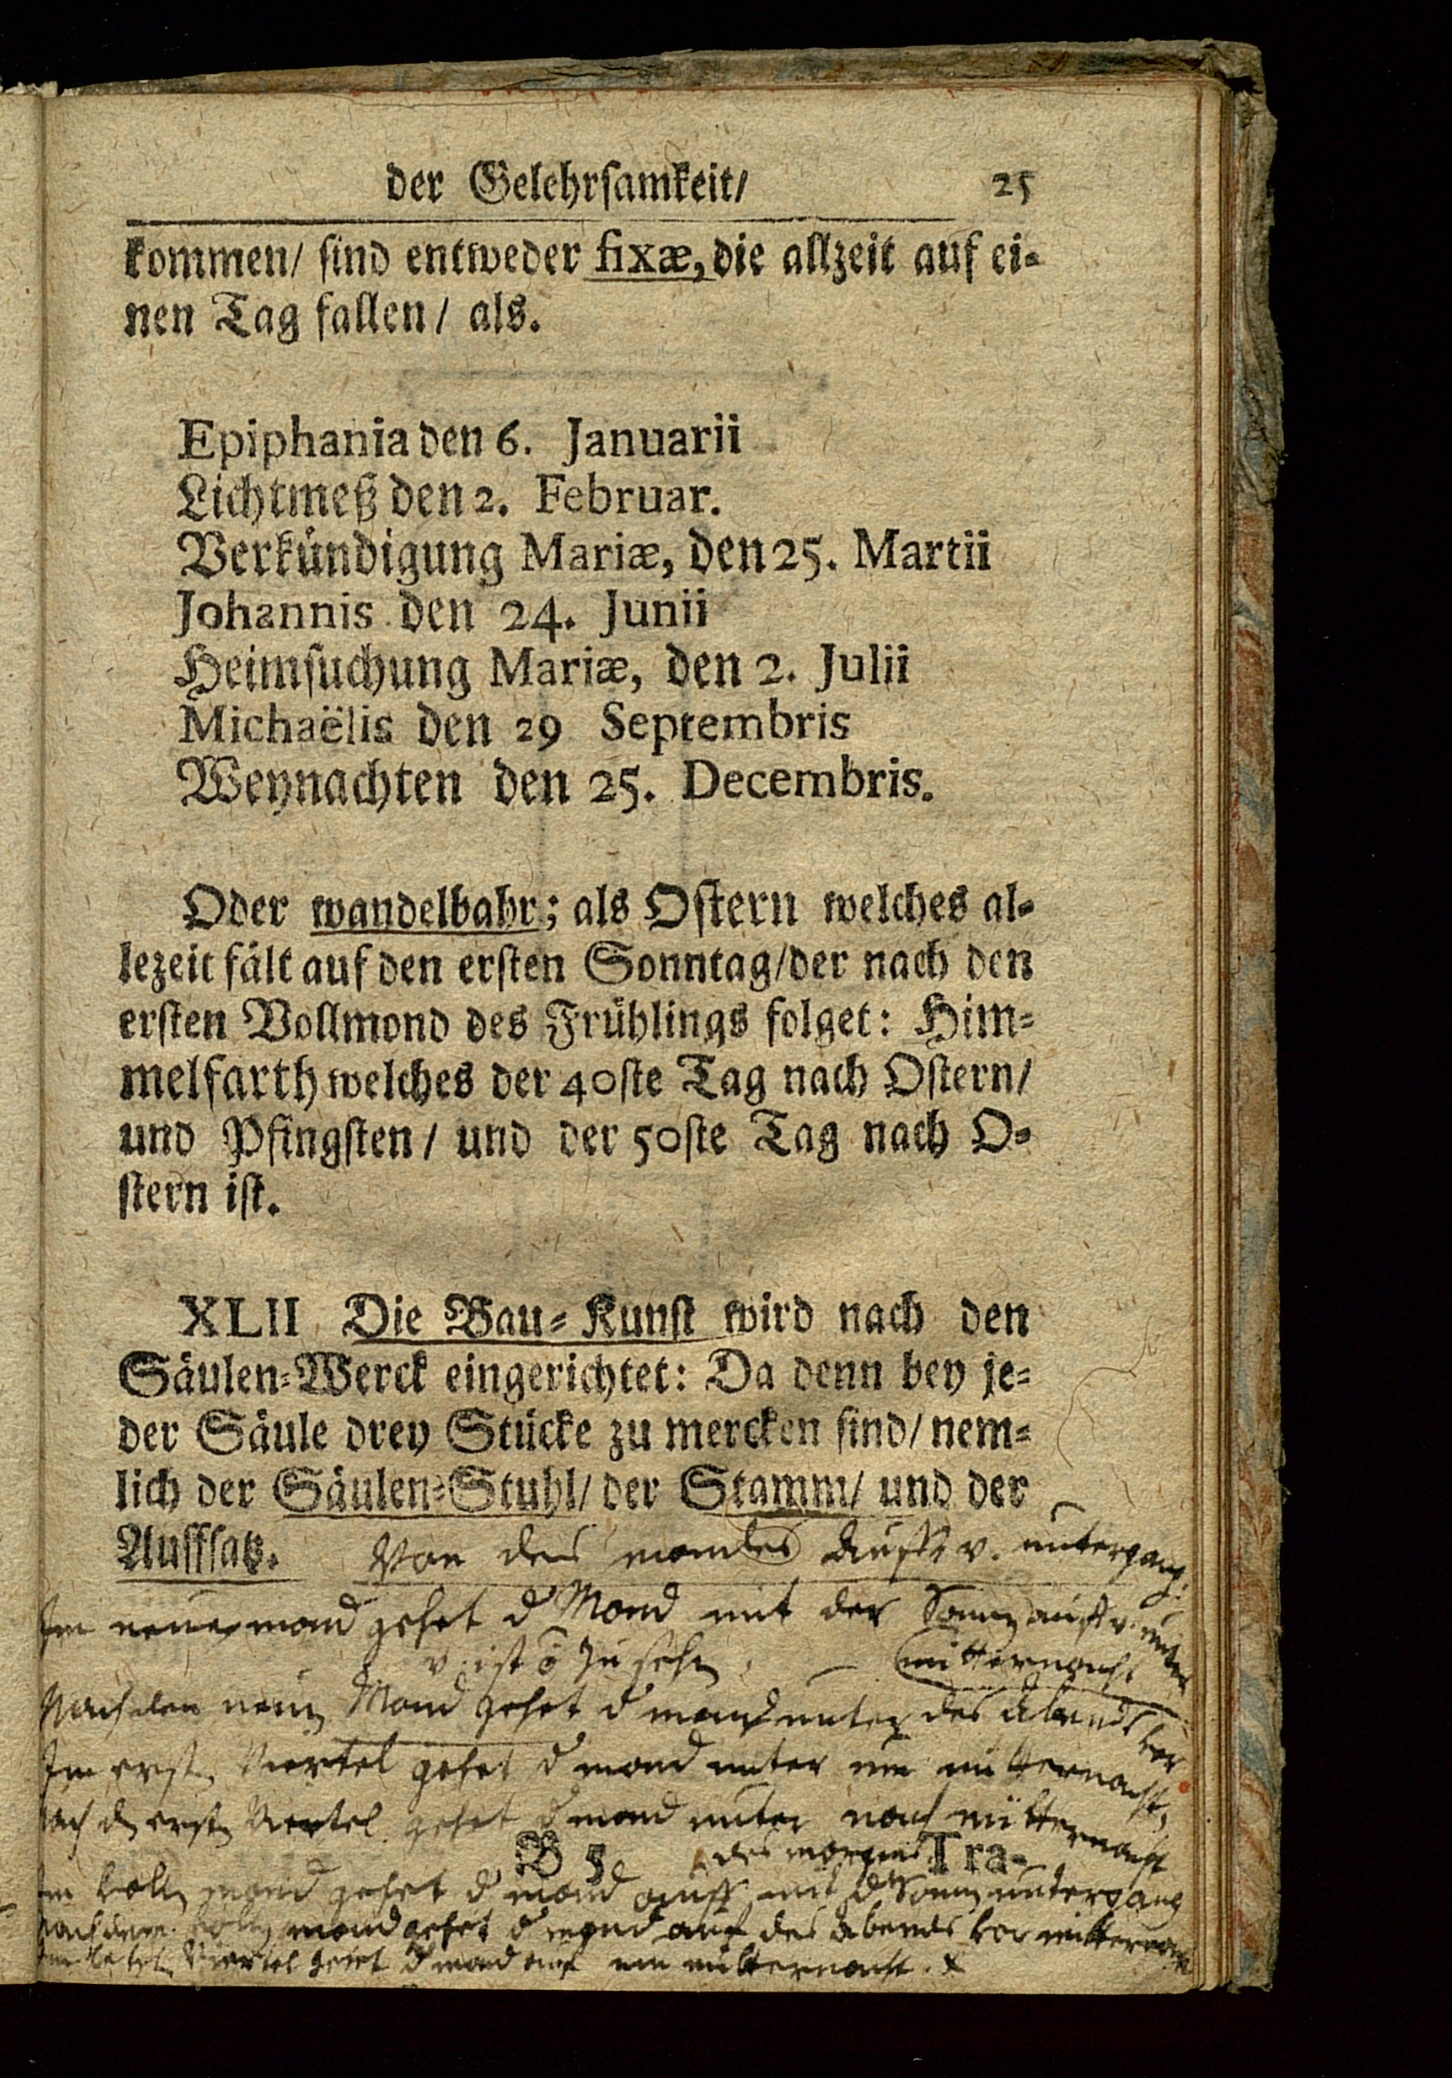 der Gelehrsamkeit/ 25
kommen/ sind entweder fixæ, die allzeit auf ei-
nen Tag fallen/ als.
Epiphania den 6. Januarii
Lichtmeß den 2. Februar.
Verkündigung Mariæ, den 25. Martii
Johannis den 24. Junii
Heimsuchung Mariæ, den 2. Julii
Michaëlis den 29 Septembris
Weynachten den 25. Decembris.
Oder wandelbahr; als Ostern welches al-
lezeit fält auf den ersten Sonntag/der nach den
ersten Vollmond des Frühlings folget: Him-
melfarth welches der 40ste Tag nach Ostern/
und Pfingsten/ und der 50ste Tag nach O-
stern ist.
XLII Die Bau-Kunst wird nach den
Säulen-Werck eingerichtet: Da denn bey je-
der Säule drey Stücke zu mercken sind/ nem-
lich der Säulen-Stuhl/ der Stamm/ und der
Auffsatz. Von des mondes Auff v. untergang.
Im neuen mond gehet d Mond mit der Sonn auff v. unter
v. ist zu sehn mitternacht
Nach den neuen Mond gehet d mond unter des Abends vor
Im erst. Viertel gehet d mond unter um mitternacht,
nach dn ersten Viertel gehet d mond unter nach mitternacht
B 5 des morgens Tra-
Im volln mond gehet d mond auff mit d Sonn untergang
nach dem volln mond gehet d mond auf des Abends vor mitternacht
Im letzt. Viertel gehet d mond auf um mitternacht.